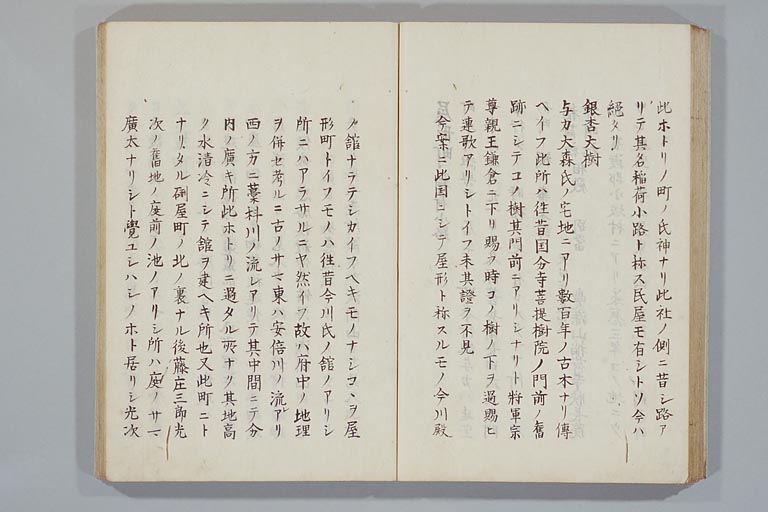 此ホトリノ町ノ氏神ナリ此社ノ側ニ昔シ路ア
リテ其名稲荷小路ト称ス民屋モ有シトソ今ハ
絶タリ
銀杏大樹
与力大森氏ノ宅地ニアリ數百年ノ古木ナリ傳
ヘイフ此所ハ往昔国分寺菩提樹院ノ門前ノ舊
跡ニシテコノ樹其門前ニアリシナリト将軍宗
尊親王鎌倉ニ下リ賜フ時コノ樹ノ下ヲ過賜ヒ
テ連歌アリシトイフ未其證ヲ不見
今案ニ此国ニシテ屋形ト称スルモノ今川殿
ノ舘ナラテシカイフヘキモノナシコヽヲ屋
形町トイフモノハ往昔今川氏ノ舘ノアリシ
所ニハアラサルニヤ然イフ故ハ府中ノ地理
ヲ併セ考ルニ古ノサマ東ハ安倍川ノ流アリ
西ノ方ニ藁科川ノ流レアリテ其中間ニテ分
内ノ廣キ所此ホトリニ過タル所ナク其地高
ク水清冷ニシテ舘ヲ建ヘキ所也又此町ニト
ナリタル研屋町ノ北ノ裏ナル後藤庄三郎光
次ノ舊地ノ庭前ノ池ノアリシ所ハ庭ノサマ
廣太ナリシト覺ユシハシノホト居リシ光次